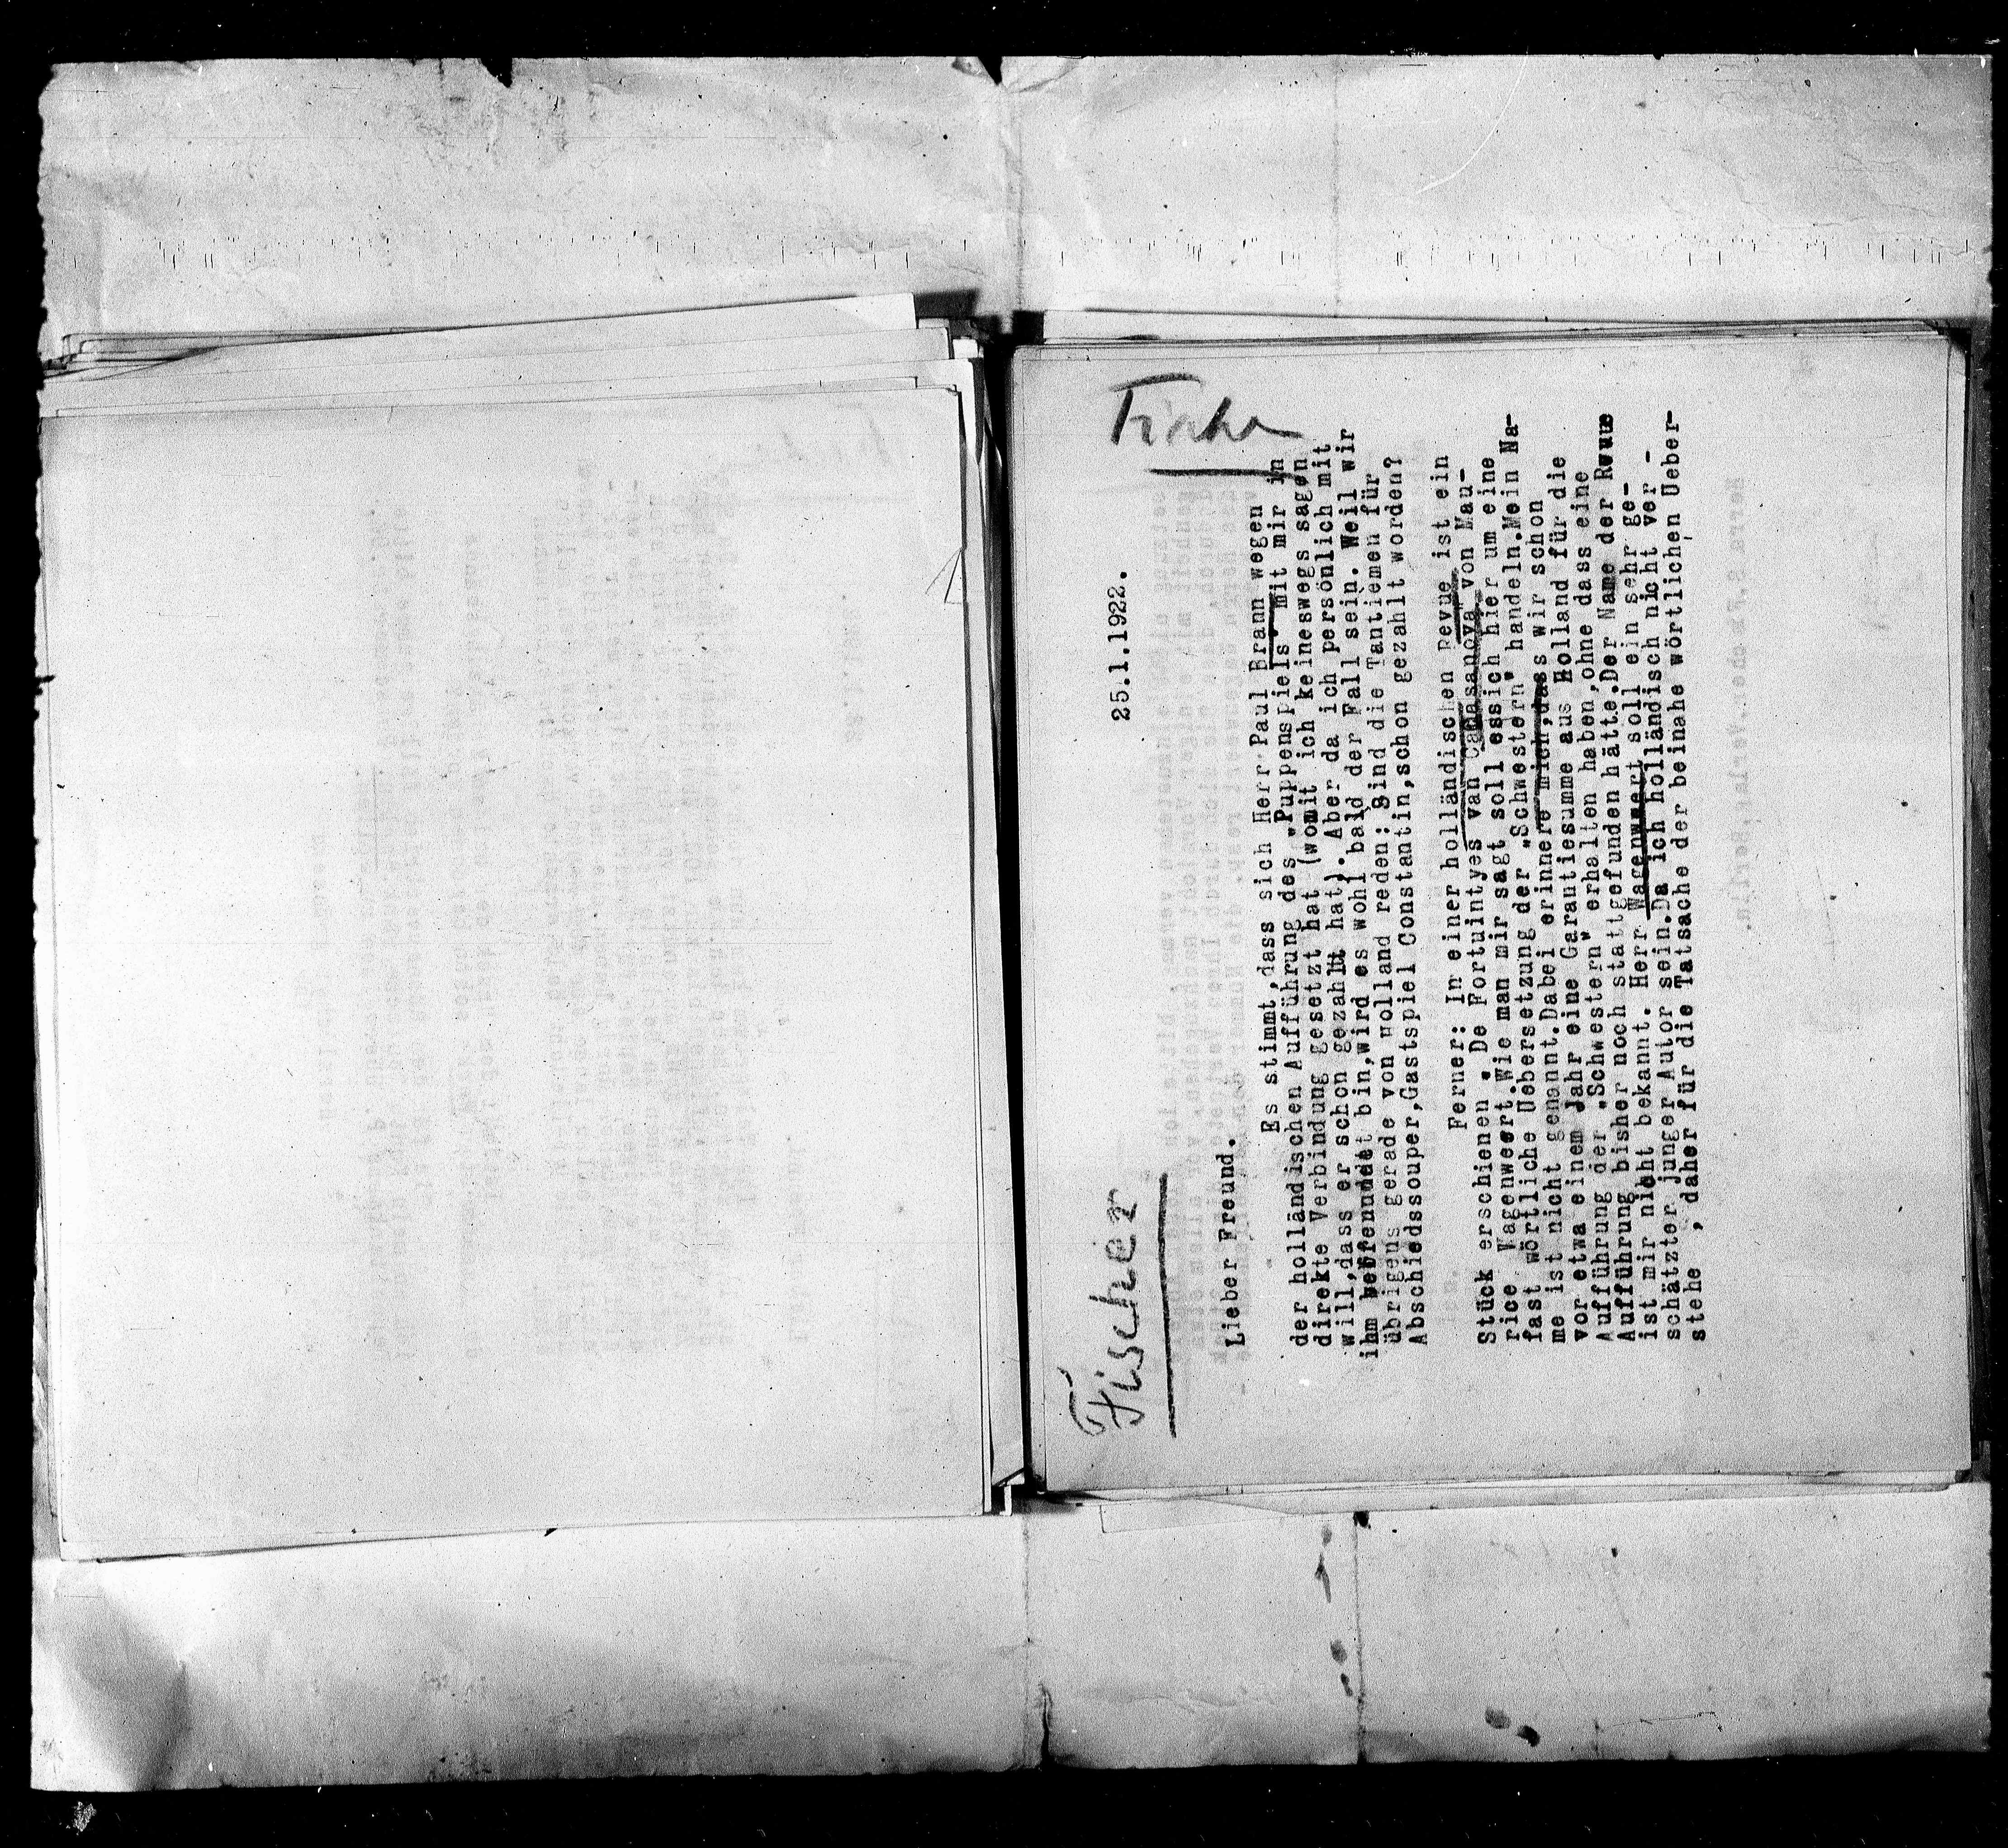 Fischer
Fischer
25.1.1922.
Lieber Freund.
Es stimmt, dass sich Herr Paul Brann wegen
der holländischen Aufführung des „Puppenspiels" mit mir in
direkte Verbindung gesetzt hat (womit ich keineswegs sagen
will, dass er schon gezahlt hat). Aber da ich persönlich mit
ihm befreundet bin, wird es wohl bald der Fall sein. Weil wir
übrigens gerade von Holland reden: Sind die Tantiemen für
Abschiedssouper, Gastspiel Constantin, schon gezahlt worden?
Ferner: In einer holländischen Revue ist ein
Stück erschienen " De Fortuintyes van Casanova, von Mau-
rice Wagenwert. Wie man mir sagt soll essich hier um eine
fast wörtliche Uebersetzung der „Schwestern" handeln. Mein Na-
me ist nicht genannt. Dabei erinnere mich, dass wir schon
vor etwa einem Jahr eine Garantiesumme aus Holland für die
Aufführung der „Schwestern" erhalten haben, ohne dass eine
Aufführung bisher noch stattgefunden hätte. Der Name der Revue
ist mir nicht bekannt. Herr Wagenwert soll ein sehr ge-
schätzter junger Autor sein. Da ich holländisch nicht ver -
stehe , daher für die Tatsache der beinahe wörtlichen Ueber-